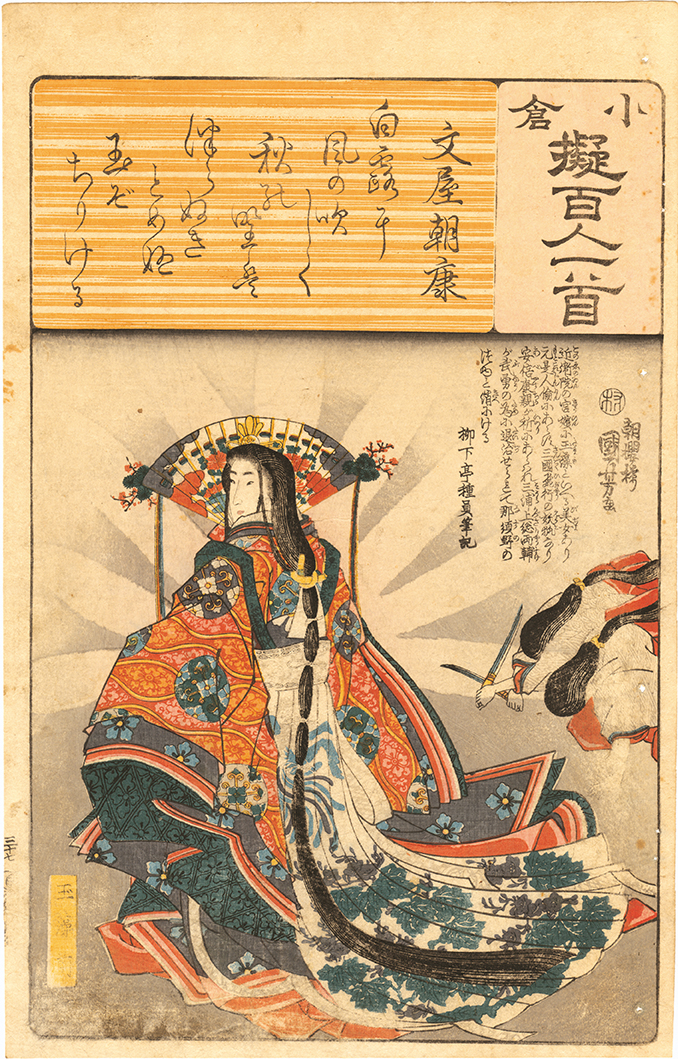 小倉
擬百人一首
文屋朝康
白露に
風の吹
しく
秋の野は
つらぬき
とめぬ
玉ぞ
ちりける
村
朝櫻楼
國芳画
近衛院の宮嬪に玉藻といへる美女あり
元是人倫にあらず三國飛行の妖狐なり
安倍康親が祈にあらはれ三浦上総両輔
が武勇の為に退治せられて那須野の
柳下亭種員筆記
玉藻前
三十七